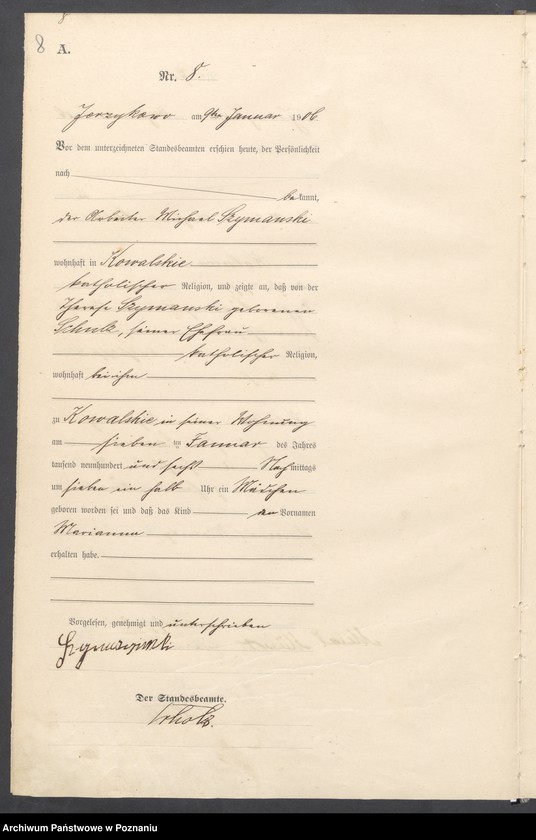 8
8
A.
Nr. 8.
Jerzykowo am 9ten Januar 1906
Vor dem unterzeichneten Standesbeamten erschien heute, der Persönlichkeit
nach
bekannt,
der Arbeiter Michael Szymanski
wohnhaft in Kowalskie
katholischer Religion, und zeigte an, daß von der
Therese Szymanski geborenen
Schulz, seiner Ehefrau
katholischer Religion,
wohnhaft bei ihm
zu Kowalskie in seiner Wohnung
am sieben ten Januar des Jahres
tausend neunhundert und sechs Nachmittags
um sieben ein halb Uhr ein Mädchen
geboren worden sei und daß das Kind den Vornamen
Marianna
erhalten habe.
Vorgelesen, genehmigt und unterschrieben
Der Standesbeamte.
Archiwum Państwowe w Poznaniu